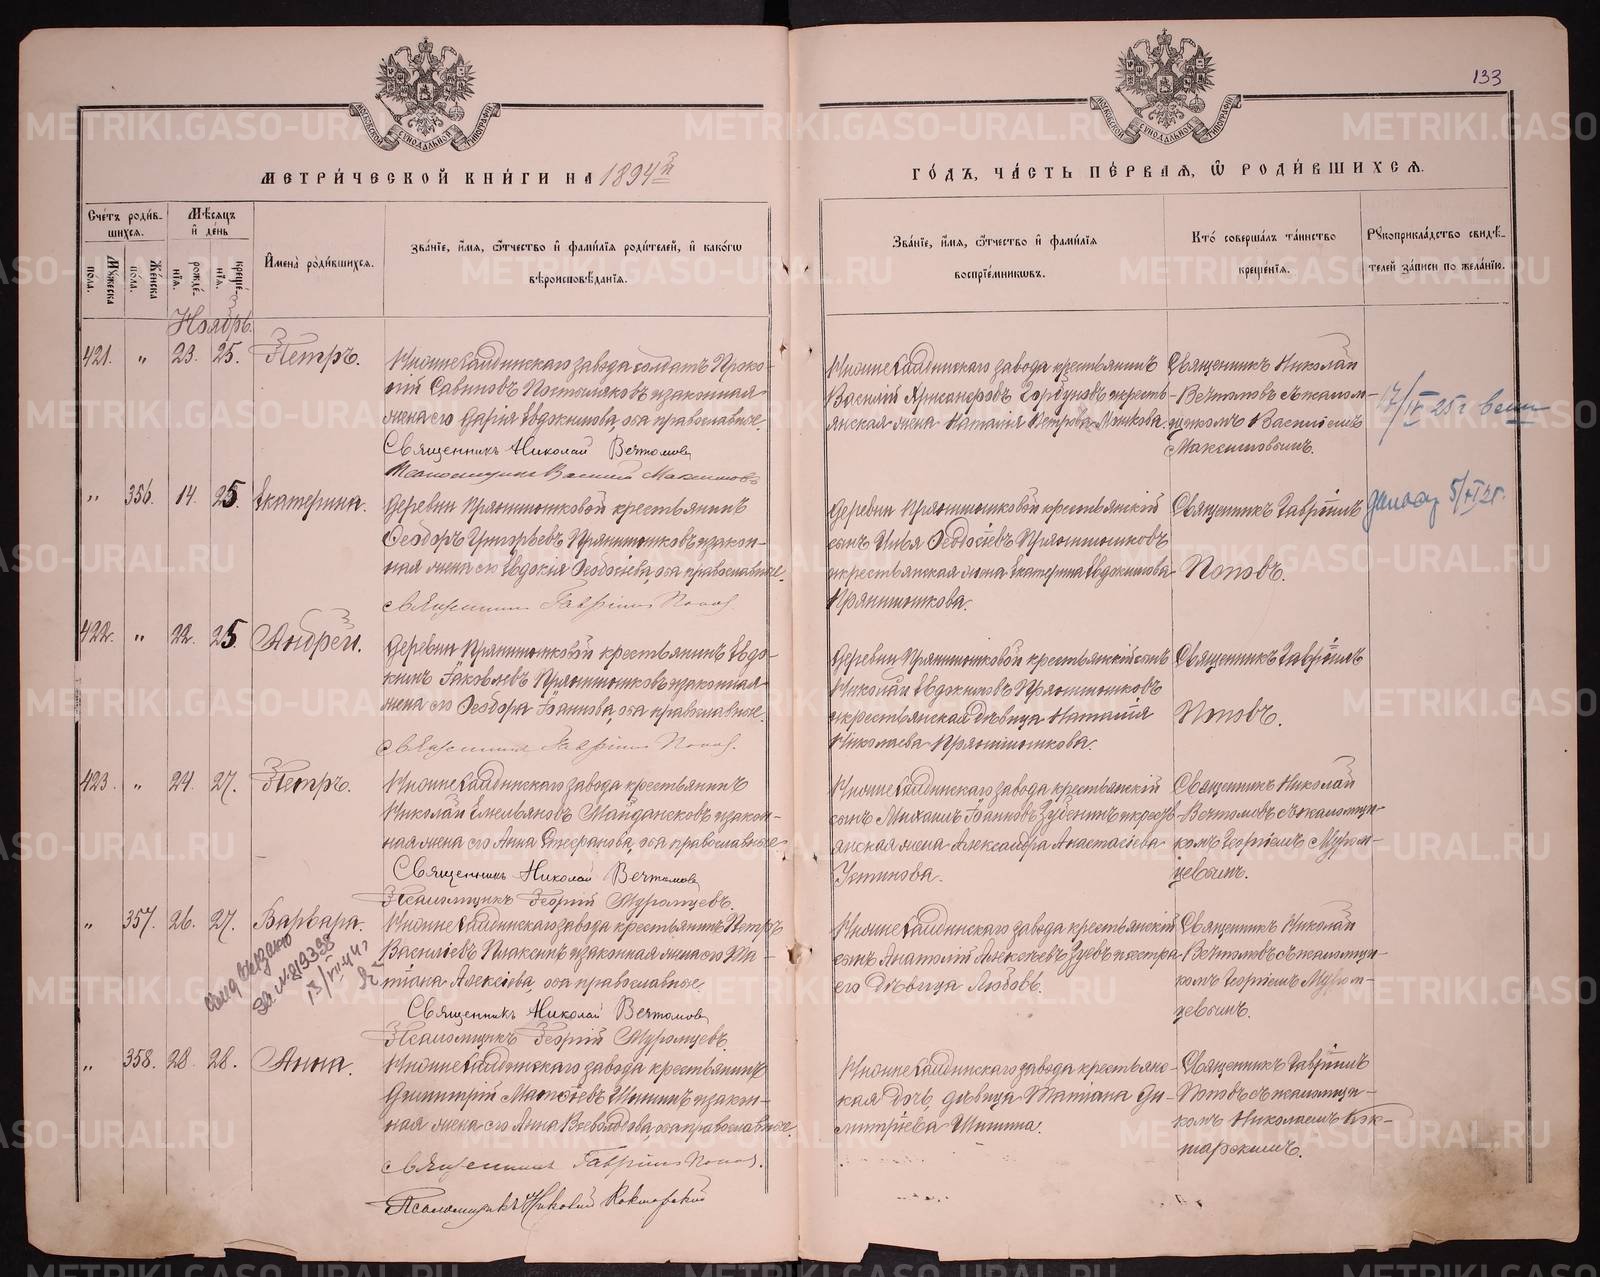 133
МОСКОВСКОЙ СѴНОДАЛЬНОЙ ТИПОГРАФІИ
МОСКОВСКОЙ СѴНОДАЛЬНОЙ ТИПОГРАФІИ
МЕТРИ́ЧЕСКОЙ КНИ́ГИ НА 1894й
ГО́ДЪ, ЧА́СТЬ ПЕ́РВАЯ, Ѡ РОДИ́ВШИХСЯ.
Сче́тъ роди́в-
шихся.
Мѣ́сяцъ
и҆ де́нь
Му́жеска
по́ла.
Же́нска
по́ла.
рожде́-
нїя.
креще́-
нїя.
И҆мена̀ роди́вшихся.
Зва́нїе, и҆́мя, ѻ҆́тчество и҆ фами́лїя роди́телей, и҆ како́гѡ
вѣроисповѣ́данїя.
Зва́нїе, и҆́мя, ѻ҆́тчество и҆ фами́лїя
воспрїе́мникѡвъ.
Кто̀ соверша́лъ та́инство
креще́нїя.
Рꙋкоприкла́дство свидѣ́-
телей за́писи по жела́нїю.
Ноябрь.
421. „ 23. 25. Петръ.
Нижнесалдинскаго завода солдатъ Проко-
пій Савиновъ Постыляковъ и законная
жена его Дарія Евдокимова, оба православные.
Священникъ Николай Вечтомовъ
Псаломщикъ Василій Максимовъ
Нижнесалдинскаго завода крестьянинъ
Василій Александровъ Горбуновъ и кресть-
янская жена Наталія Петрова
Священникъ Николай
Вечтомовъ съ псалом-
щикомъ Василіемъ
Максимовымъ.
17/IV 25 г
„ 356. 14. 25. Екатерина.
Деревни Прянишниковой крестьянинъ
Ѳеодоръ Григорьевъ Прянишниковъ и закон-
ная жена его Евдокія Ѳеодосіева, оба православные.
Священникъ Гавріилъ Поповъ.
Деревни Прянишниковой крестьянскій
сынъ Илья Ѳедосіевъ Прянишниковъ
и крестьянская жена Екатерина Евдокимова
Прянишникова.
Священникъ Гавріилъ
Поповъ.
422. „ 22. 25. Андрей.
Деревни Прянишниковой крестьянинъ Евдо-
кимъ Іаковлевъ Прянишниковъ и законная
жена его Ѳеодора Іоаннова, оба православные.
Священникъ Гавріилъ Поповъ.
Деревни Прянишниковой крестьянскій сынъ
Николай Евдокимовъ Прянишниковъ
и крестьянская дѣвица Наталія
Николаева Прянишникова.
Священникъ Гавріилъ
Поповъ.
423. „ 24. 27. Петръ.
Нижнесалдинскаго завода крестьянинъ
Николай Емельяновъ Майданековъ и закон-
ная жена его Анна Стефанова, оба православные.
Священникъ Николай Вечтомовъ
Псаломщикъ Георгій Муромцевъ.
Нижнесалдинскаго завода крестьянскій
сынъ Михаилъ Іоанновъ Зубенинъ и кресть-
янская жена Александра Анастасіева
Устинова.
Священникъ Николай
Вечтомовъ съ псаломщи-
комъ Георгіемъ Муром-
цевымъ.
„ 357. 26. 27. Варвара.
Нижнесалдинскаго завода крестьянинъ Петръ
Васильевъ Плаксинъ и законная жена его Та-
тіана Алексіева, оба православные.
Священникъ Николай Вечтомовъ
Псаломщикъ Георгій Муромцевъ.
Нижнесалдинскаго завода крестьянскій
сынъ Анатолій Алексіевъ Зуевъ и сестра
его дѣвица Любовь.
Священникъ Николай
Вечтомовъ съ псаломщи-
комъ Георгіемъ Муром-
цевымъ.
13/VII-44 г
„ 358. 28. 28. Анна.
Нижнесалдинскаго завода крестьянинъ
Димитрій Матѳіевъ Шишинъ и закон-
ная жена его Анна Всеволодова, оба православные.
Священникъ Гавріилъ Поповъ.
Псаломщикъ Николай Кокшарскій
Нижнесалдинскаго завода крестьянс-
кая дочь, дѣвица Татіана Ди-
митріева Шишина.
Священникъ Гавріилъ
Поповъ съ псаломщи-
комъ Николаемъ Кок-
шарскимъ.
METRIKI.GASO-URAL.RU